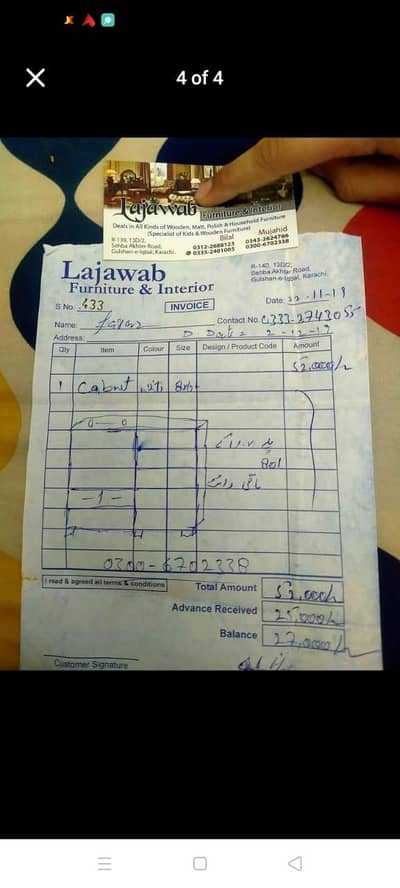 4 of 4
Lajawab Furniture & Interior
Deals in All Kinds of Wooden, Matt, Polish & Household Furniture
(Specialist of Kids & Wooden Furniture)
Bilal Mujahid
R-139, 13D/2, 0312-2688123 0343-2624786
Sehba Akhter Road, 0335-2401005 0300-6702338
Gulshan-e-Iqbal, Karachi.
Lajawab
Furniture & Interior
R-140, 13D/2,
Sehba Akhtar Road,
Gulshan-e-Iqbal, Karachi.
S.No. 433 INVOICE Date: -11-19
Name: Contact No.
Address: D Date 2-12-19
Qty Item Colour Size Design / Product Code Amount
52,000/-
1 Cabnet
0300-6702338
I read & agreed all terms & conditions
Total Amount 52,000/-
Advance Received 25,000/-
Balance 27,000/-
Customer Signature